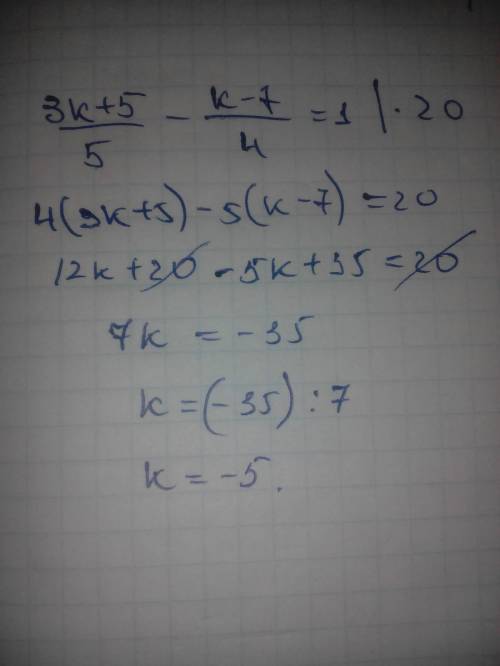 (3k+5)/5 - (k-7)/4 = 1 | · 20
4(3k+5) - 5(k-7) = 20
12k + 20 - 5k + 35 = 20
7k = -35
k = (-35) : 7
k = -5.